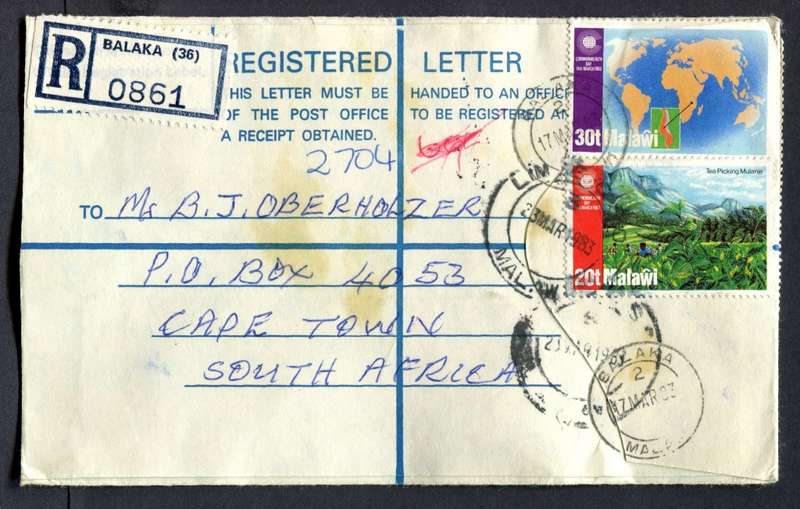 R BALAKA (36)
0861
REGISTERED LETTER
THIS LETTER MUST BE HANDED TO AN OFFIC
OF THE POST OFFICE TO BE REGISTERED AN
A RECEIPT OBTAINED.
2704
TO Mr B.J. OBERHOLZER
P.O. BOX 4053
CAPE TOWN
SOUTH AFRICA
COMMONWEALTH
DAY
30t Malaŵi
Tea Picking Mulanje
COMMONWEALTH
DAY
20t Malaŵi
2
17 MA
LIM
23 MAR 1983
MALAW
23 MAR 198
BALAKA
2
17 MAR 83
MALA